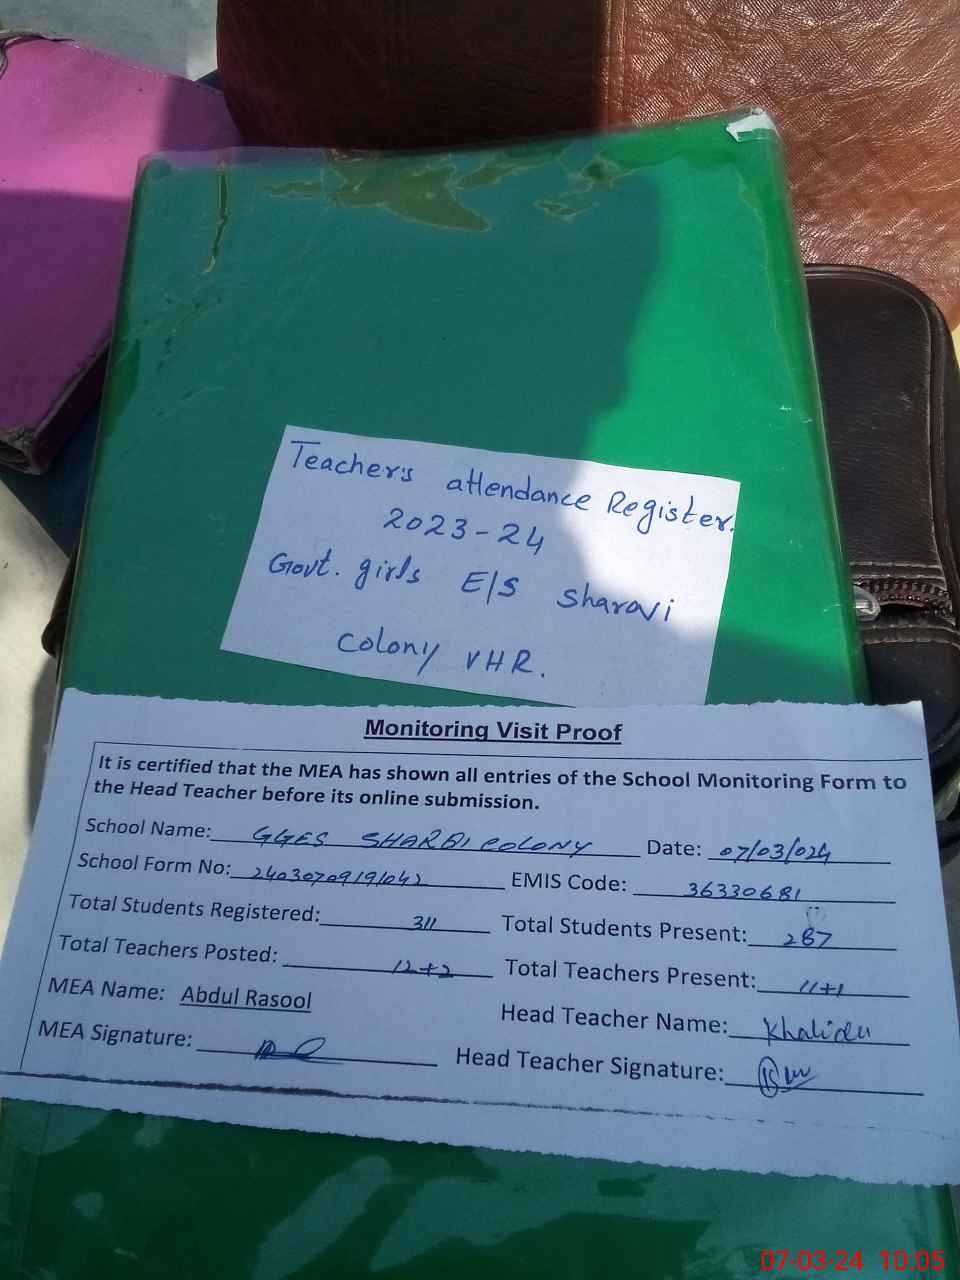 Teacher's attendance Register.
2023-24
Govt. girls E/S Sharavi
Colony VHR.
Monitoring Visit Proof
It is certified that the MEA has shown all entries of the School Monitoring Form to
the Head Teacher before its online submission.
School Name: GGES SHARBI COLONY Date: 07/03/024
School Form No: 24030709191042 EMIS Code: 36330681
Total Students Registered: 311 Total Students Present: 287
Total Teachers Posted: 12+2 Total Teachers Present: 11+1
MEA Name: Abdul Rasool
Head Teacher Name:
MEA Signature:
Head Teacher Signature:
07-03-24 10:05